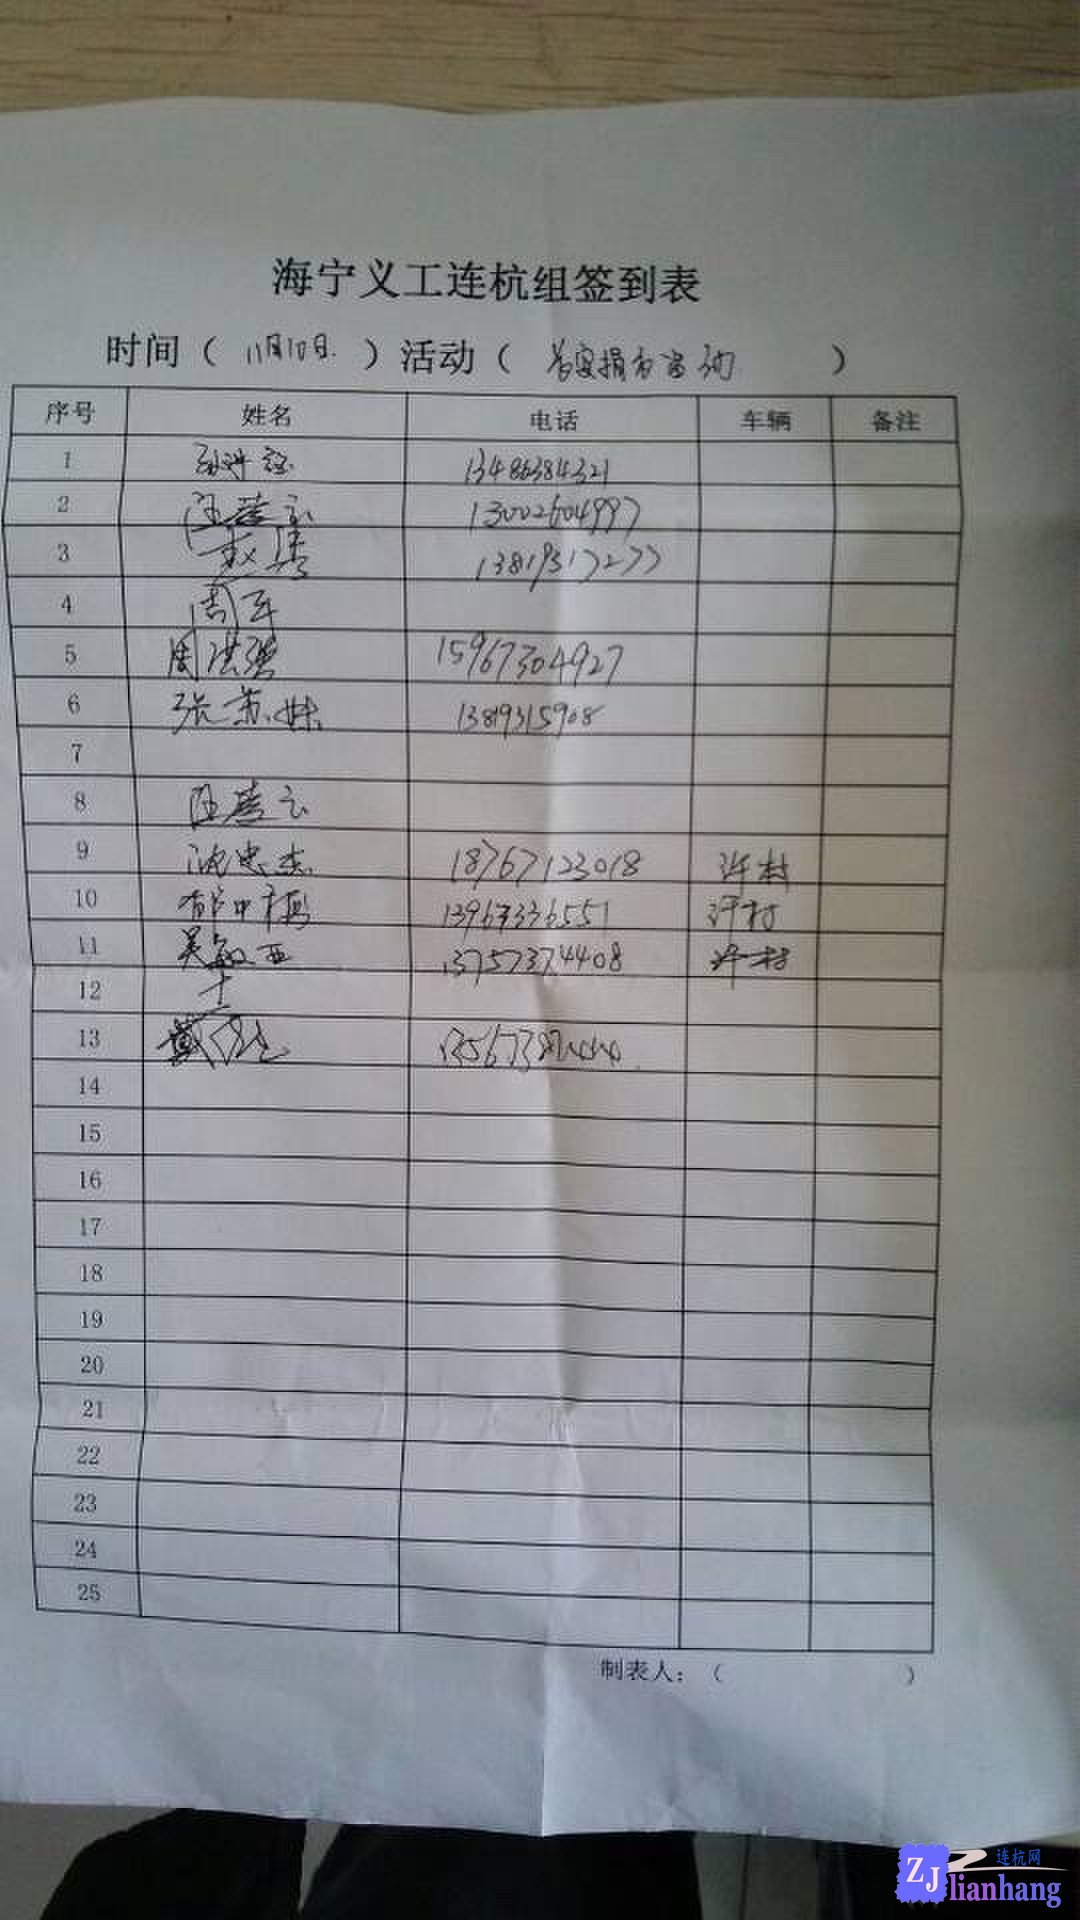 海宁义工连杭组签到表
时间（ 11月10日. ）活动（ ）
序号 姓名 电话 车辆 备注
1 13486384321
2 13002604997
3 13819317277
4 周军
5 周洪强 15967304927
6 张苏妹 13819315908
7
8
9 沈忠杰 18767123018 许村
10 郁中梅 13967336551 许村
11 吴敏亚 13757374408 许村
12
13 戴
14
15
16
17
18
19
20
21
22
23
24
25
制表人：（ ）
ZJ 连杭网
lianhang